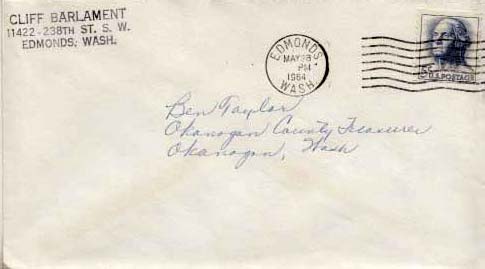 CLIFF BARLAMENT
11422-238TH ST. S. W.
EDMONDS, WASH.
EDMONDS
MAY 28
PM
1964
WASH
5¢ U.S. POSTAGE
Ben Taylor
Okanogan County Treasurer
Okanogan, Wash